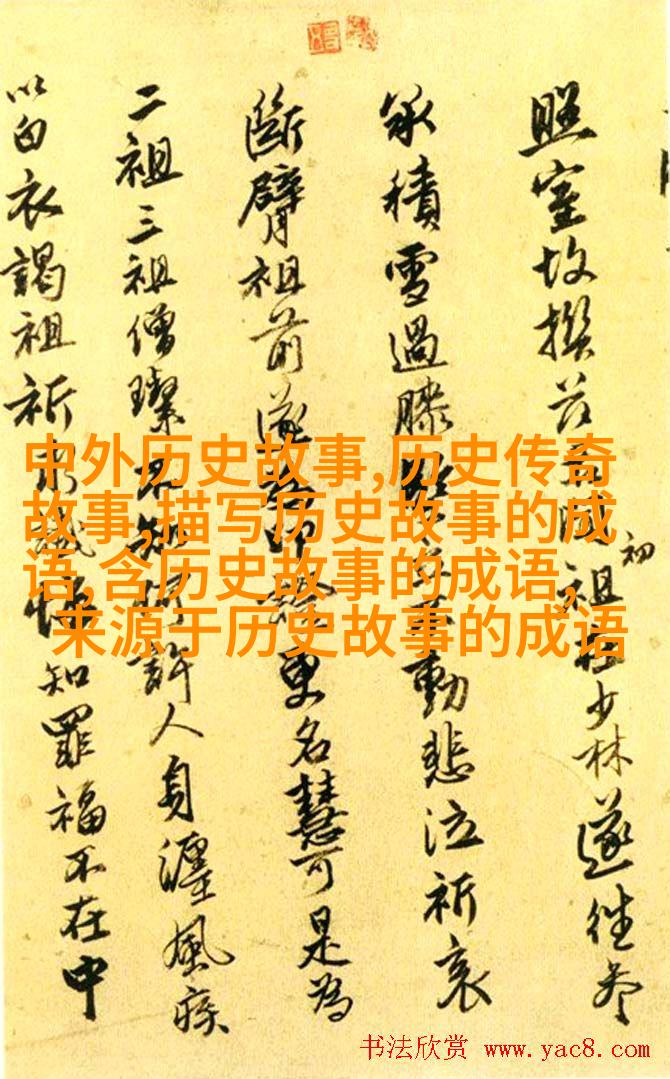 照室故撰
祖初在少林遂往參
承積雪過膝
動悲泣祈哀
斷臂祖前遂
更名慧可是為
二祖三祖僧璨不知何許人身纏風疾
以白衣謁祖祈
悟知罪福不在中
中外历史故事,历史传奇
故事,描写历史故事的成
语,含历史故事的成语,
来源于历史故事的成语
书法欣赏 www.yac8.com